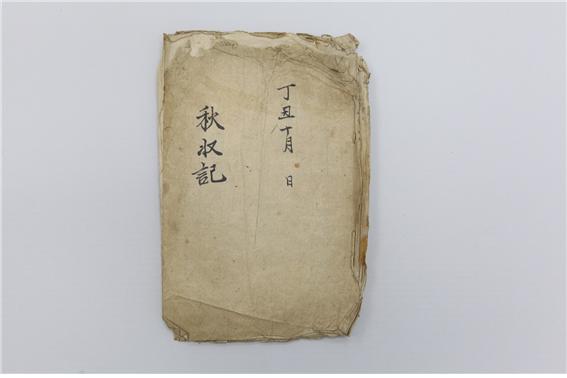 丁丑十月 日
秋収記